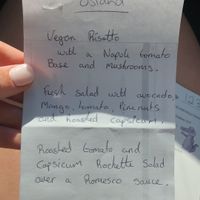 Vegan Risotto
with a Napoli tomato
Base and mushrooms.
Fresh Salad with avocado,
Mango, tomato, Pinenuts
and roasted capsicum.
Roasted tomato and
Capsicum Rockette Salad
over a Romesco sauce.